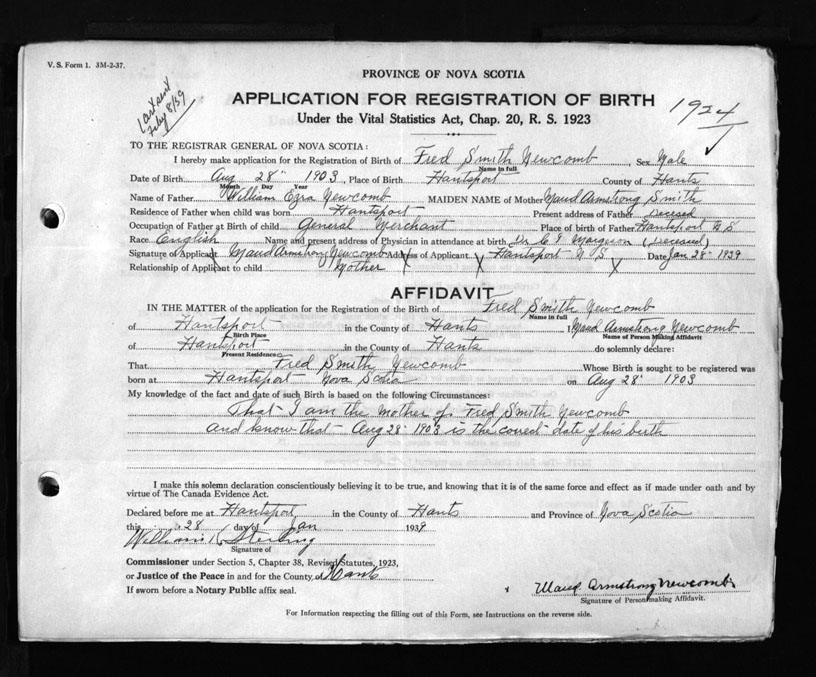 V. S. Form 1. 3M-2-37.
PROVINCE OF NOVA SCOTIA
APPLICATION FOR REGISTRATION OF BIRTH
1924
Under the Vital Statistics Act, Chap. 20, R. S. 1923
TO THE REGISTRAR GENERAL OF NOVA SCOTIA:
I hereby make application for the Registration of Birth of Fred Smith Newcomb, Sex Male
Name in full
Date of Birth Aug 28" 1903, Place of Birth Hantsport County of Hants
Month Day Year
Name of Father William Ezra Newcomb MAIDEN NAME of Mother Maud Armstrong Smith
Residence of Father when child was born Hantsport Present address of Father
Occupation of Father at Birth of child General Merchant Place of birth of Father Hantsport N S
Race English Name and present address of Physician in attendance at birth Dr
Signature of Applicant Maud Armstrong Newcomb Address of Applicant Hantsport N S Date Jan 28" 1939
Relationship of Applicant to child Mother
AFFIDAVIT
IN THE MATTER of the application for the Registration of the Birth of Fred Smith Newcomb
Name in full
of Hantsport in the County of Hants I Maud Armstrong Newcomb
Birth Place Name of Person Making Affidavit
of Hantsport in the County of Hants do solemnly declare:
Present Residence
That Fred Smith Newcomb Whose Birth is sought to be registered was
born at Hantsport Nova Scotia on Aug 28" 1903
My knowledge of the fact and date of such Birth is based on the following Circumstances:
That I am the mother of Fred Smith Newcomb
and know that Aug 28" 1903 is the correct date of his birth
I make this solemn declaration conscientiously believing it to be true, and knowing that it is of the same force and effect as if made under oath and by
virtue of The Canada Evidence Act.
Declared before me at Hantsport, in the County of Hants and Province of Nova Scotia
this 28 day of Jan 1939
William Sterling
Signature of
Commissioner under Section 5, Chapter 38, Revised Statutes, 1923,
or Justice of the Peace in and for the County of Hants
If sworn before a Notary Public affix seal.
x Maud Armstrong Newcomb
Signature of Person making Affidavit.
For Information respecting the filling out of this Form, see Instructions on the reverse side.